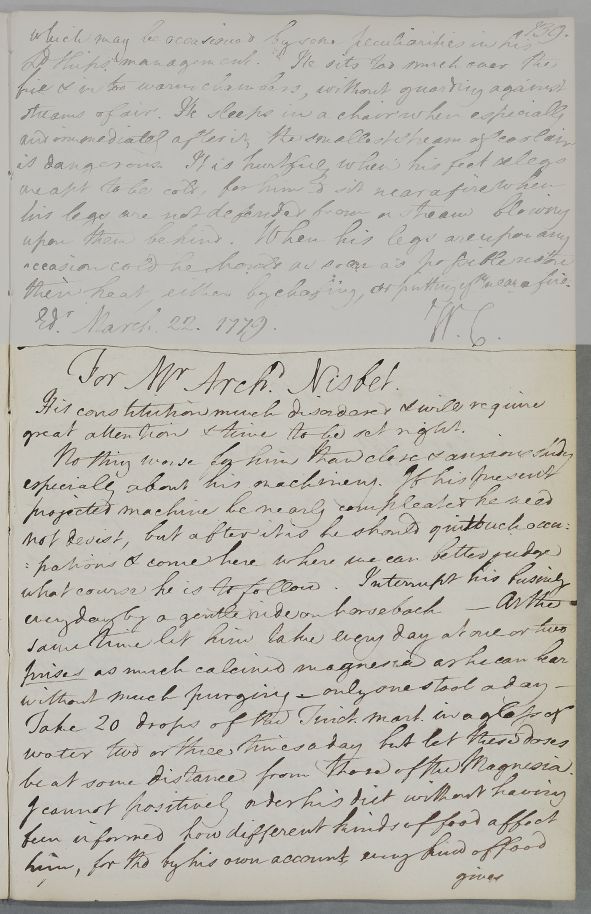 139.
which may be occasioned by some peculiarities in his
Ldships management. He sits too much over the
fire & in too warm chambers, without guarding against
streams of air. He sleeps in a chair when especially
and immediately after it, the smallest stream of cool air
is dangerous. It is hurtful, when his feet & legs
are apt to be cold, for him to sit near a fire when
his legs are not defended from a stream blowing
upon them behind. When his legs are upon any
occasion cold he should as soon as possible restore
their heat, either by chafing, or putting ym near a fire.
Edr. March. 22. 1779. W. C.
For Mr Archd. Nisbet.
His constitution much disordered & will require
great attention & time to be set right.
Nothing worse for him than close & anxious study
especially about his machinery. If his present
projected machine be nearly compleated he need
not desist, but after it is he should quitt such occu:
:pations & come here where we can better judge
what course he is to follow. Interrupt his business
every day by a gentle ride on horseback — At the
same time let him take every day at one or two
prises as much calcined magnesia as he can bear
without much purging — only one stool a day —
Take 20 drops of the Tinct. mart. in a glass of
water two or three times a day but let these doses
be at some distance from those of the Magnesia.
I cannot positively order his diet without having
been informed how different kinds of food affect
him, for tho by his own account, every kind of food
gives